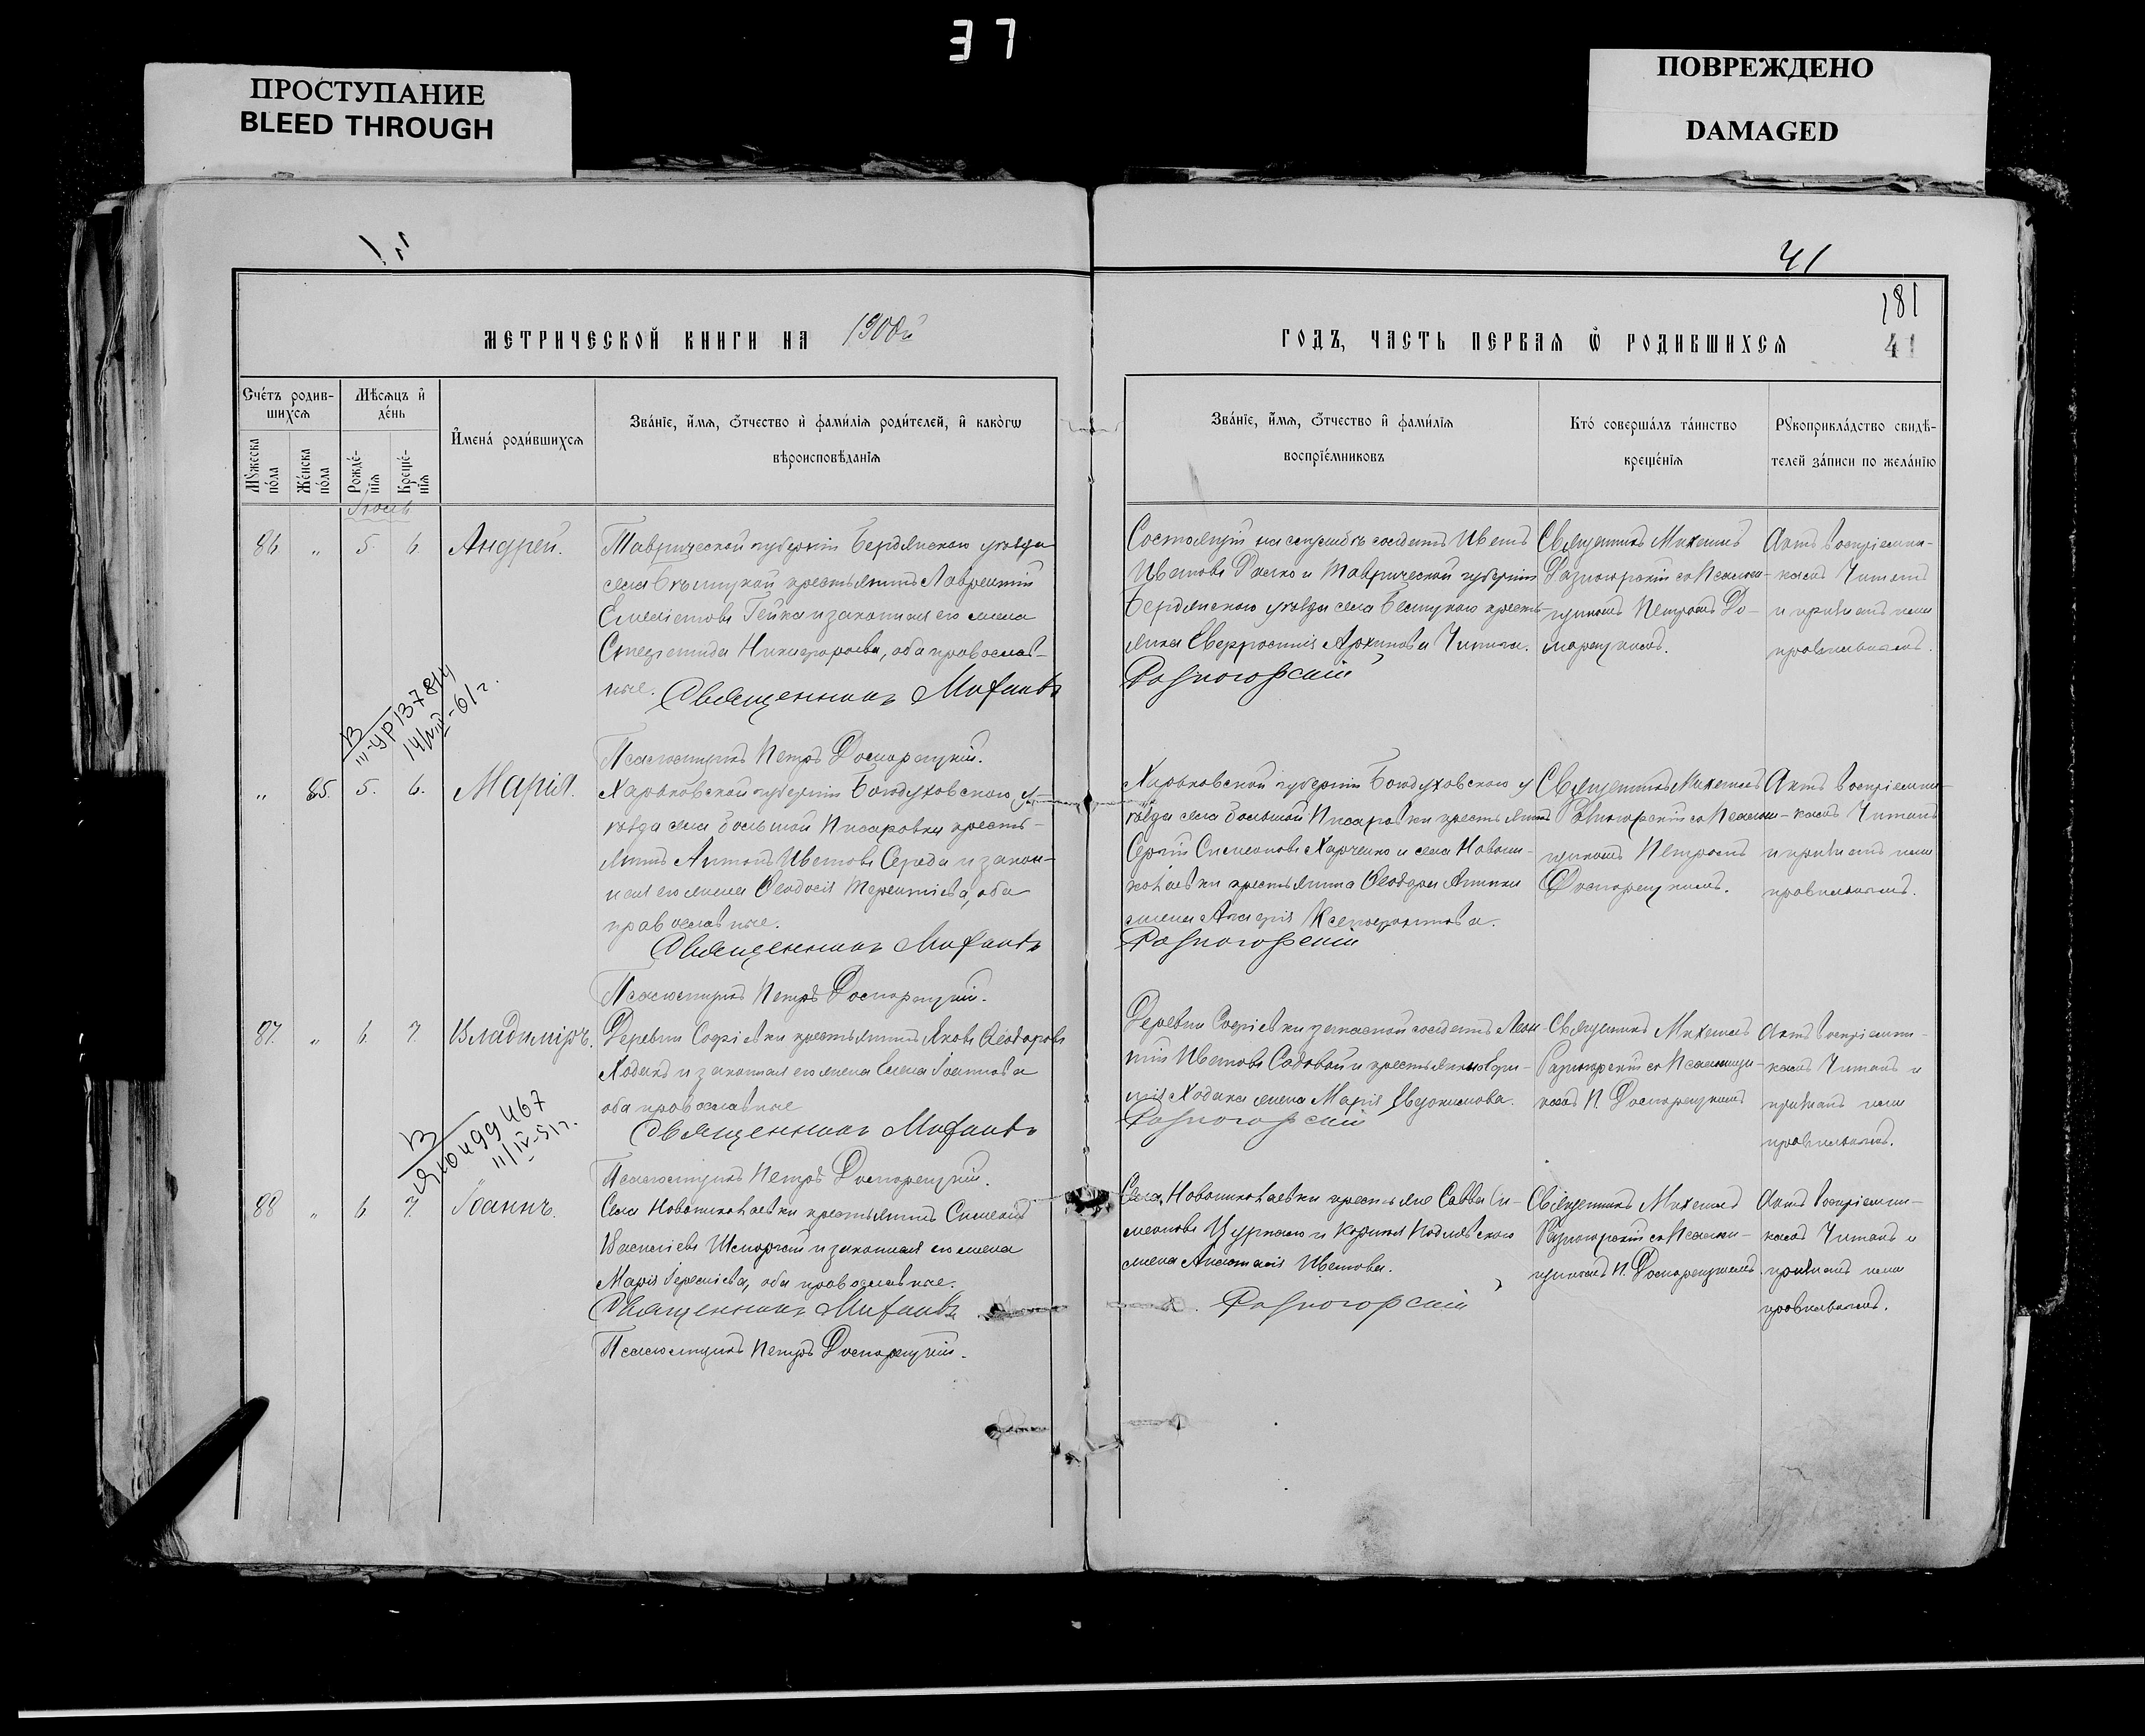 37
ПРОСТУПАНИЕ
BLEED THROUGH
ПОВРЕЖДЕНО
DAMAGED
41
181
41
МЕТРИЧЕСКОЙ КНИГИ НА 1900й
ГОДЪ, ЧАСТЬ ПЕРВАЯ Ѡ РОДИВШИХСЯ
Счетъ родив-
шихся
Мѣсяцъ и
день
Мужеска
пола
Женска
пола
Рожде-
нія
Креще-
нія
Имена родившихся
Званіе, имя, отчество и фамилія родителей, и какогѡ
вѣроисповѣданія
Званіе, имя, отчество и фамилія
воспріемниковъ
Кто совершалъ таинство
крещенія
Рукоприкладство свидѣ-
телей записи по желанію
86 " 5. 6. Андрей.
Таврической губерніи Бердянскаго уѣзда
крестьянинъ Лаврентій
и законная его жена
Никифорова, оба православ-
ные. Священникъ Михаилъ
Псаломщикъ Петръ
Состоящій на службѣ солдатъ Иванъ
Ивановъ и Таврической губерніи
Бердянскаго уѣзда села кресть-
янка
Разногорскій
Священникъ Михаилъ
Разногорскій со Псалом-
щикомъ Петромъ До-
Актъ воспріемни-
камъ читанъ
и признанъ ими
правильнымъ.
В
III-УР 137844
14/VIII-61 г.
" 85. 5. 6. Марія.
Харьковской губерніи Богодуховскаго у-
ѣзда села Большой Писаровки кресть-
янинъ Антонъ Ивановъ Середа и закон-
ная его жена Ѳеодосія Терентіева, оба
православные.
Священникъ Михаилъ
Псаломщикъ Петръ
Харьковской губерніи Богодуховскаго у
ѣзда села Большой Писаровки крестьянинъ
Сергій Симеоновъ Харченко и села Новони-
колаевки крестьянина Ѳеодора
жена Ксенофонтова.
Разногорскій
Священникъ Михаилъ
Разногорскій со Псалом-
щикомъ Петромъ
Актъ воспріемни-
камъ читанъ
и признанъ ими
правильнымъ.
87. " 6. 7. Владиміръ.
Деревни Софіевки крестьянинъ Яковъ Ѳеодоровъ
Ходакъ и законная его жена Елена Іоаннова
оба православные
Священникъ Михаилъ
Псаломщикъ Петръ
Деревни Софіевки запасной солдатъ Леон-
тій Ивановъ Садовой и крестьянина
Ходака жена Марія Евдокимова.
Разногорскій
Священникъ Михаилъ
Разногорскій со Псаломщи-
комъ П.
Актъ воспріемни-
камъ читанъ и
признанъ ими
правильнымъ.
В
11/IV-51 г.
88 " 6 7. Іоаннъ.
Села Новониколаевки крестьянинъ Симеонъ
Васильевъ и законная его жена
Марія Іереміева, оба православные.
Священникъ Михаилъ
Псаломщикъ Петръ
Села Новониколаевки крестьяне Савва Си-
меоновъ и
жена Анастасія Иванова.
Разногорскій
Священникъ Михаилъ
Разногорскій со Псалом-
щикомъ П.
Актъ воспріемни-
камъ читанъ и
признанъ ими
правильнымъ.